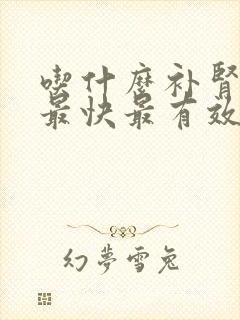 喫什麼补腎
最快最有效
幻夢雪兔